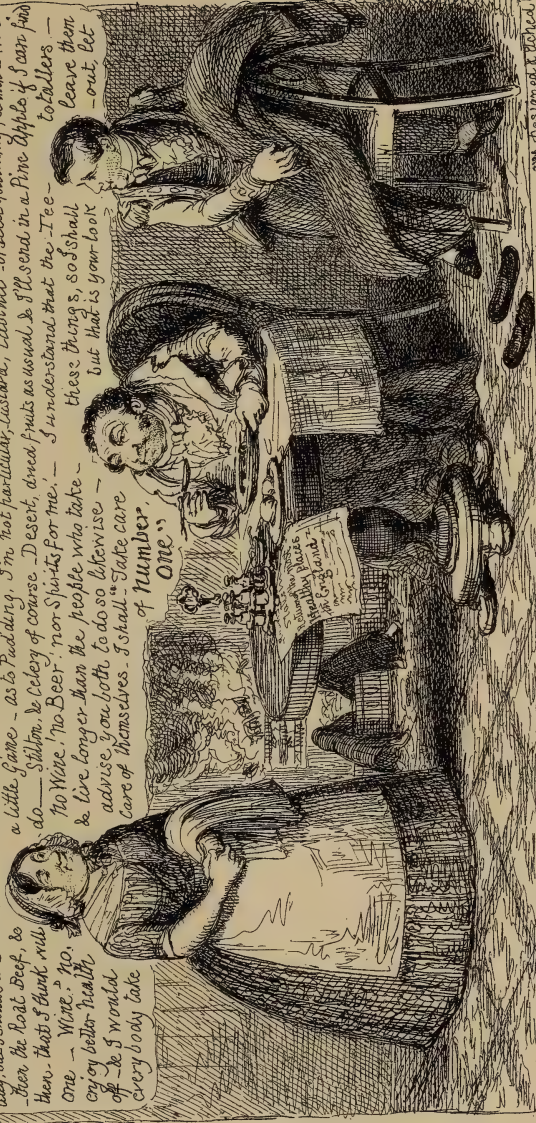 then the Roast Beef, & a little Game – as to Pudding, I'm not particular, Custard,
then – that I think will do – Stilton, & Celery of course – Desert, dried fruits as usual & I'll send in a Pine Apple if I can find
one – Wine? no. no Wine! no Beer! nor Spirits for me! – I understand that the Tee-totallers –
enjoy better health & live longer than the people who take these things, so I shall leave them
off – & I would advise you both to do so likewise – but that is your look-out, let
every body take care of themselves. I shall "Take care
of Number
One"
Healthy Places
in England
Designed & Etched